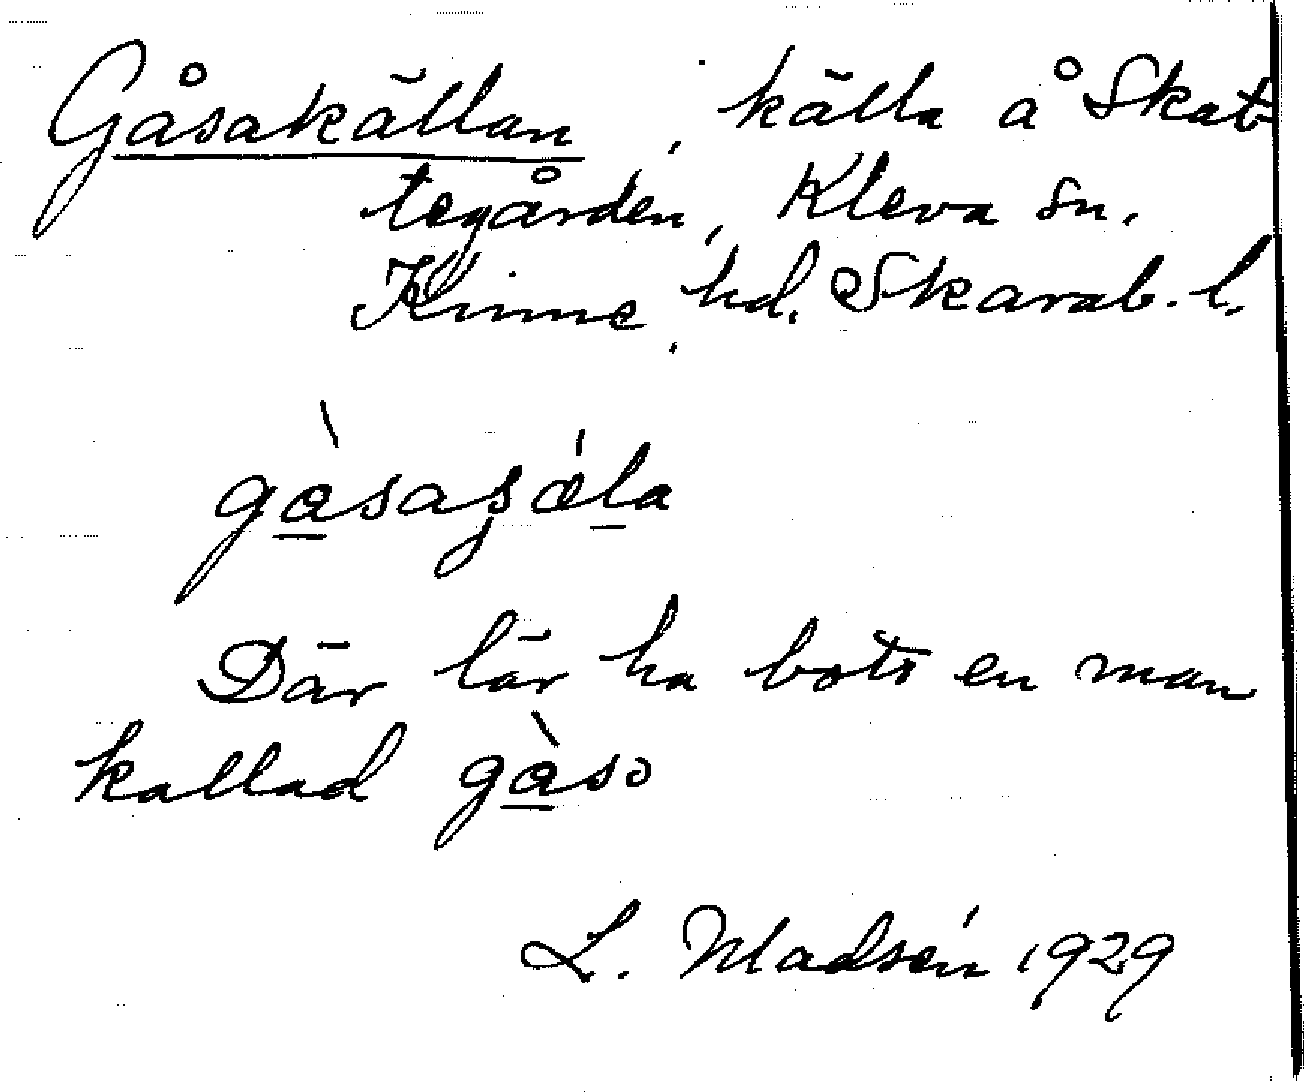 Gåsakällan, källa å Skat-
tegården, Kleva sn.
Kinne hd. Skarab. l.
gàsasjǽla
Där lär ha bott en man
kallad gàso
L. Madsén 1929